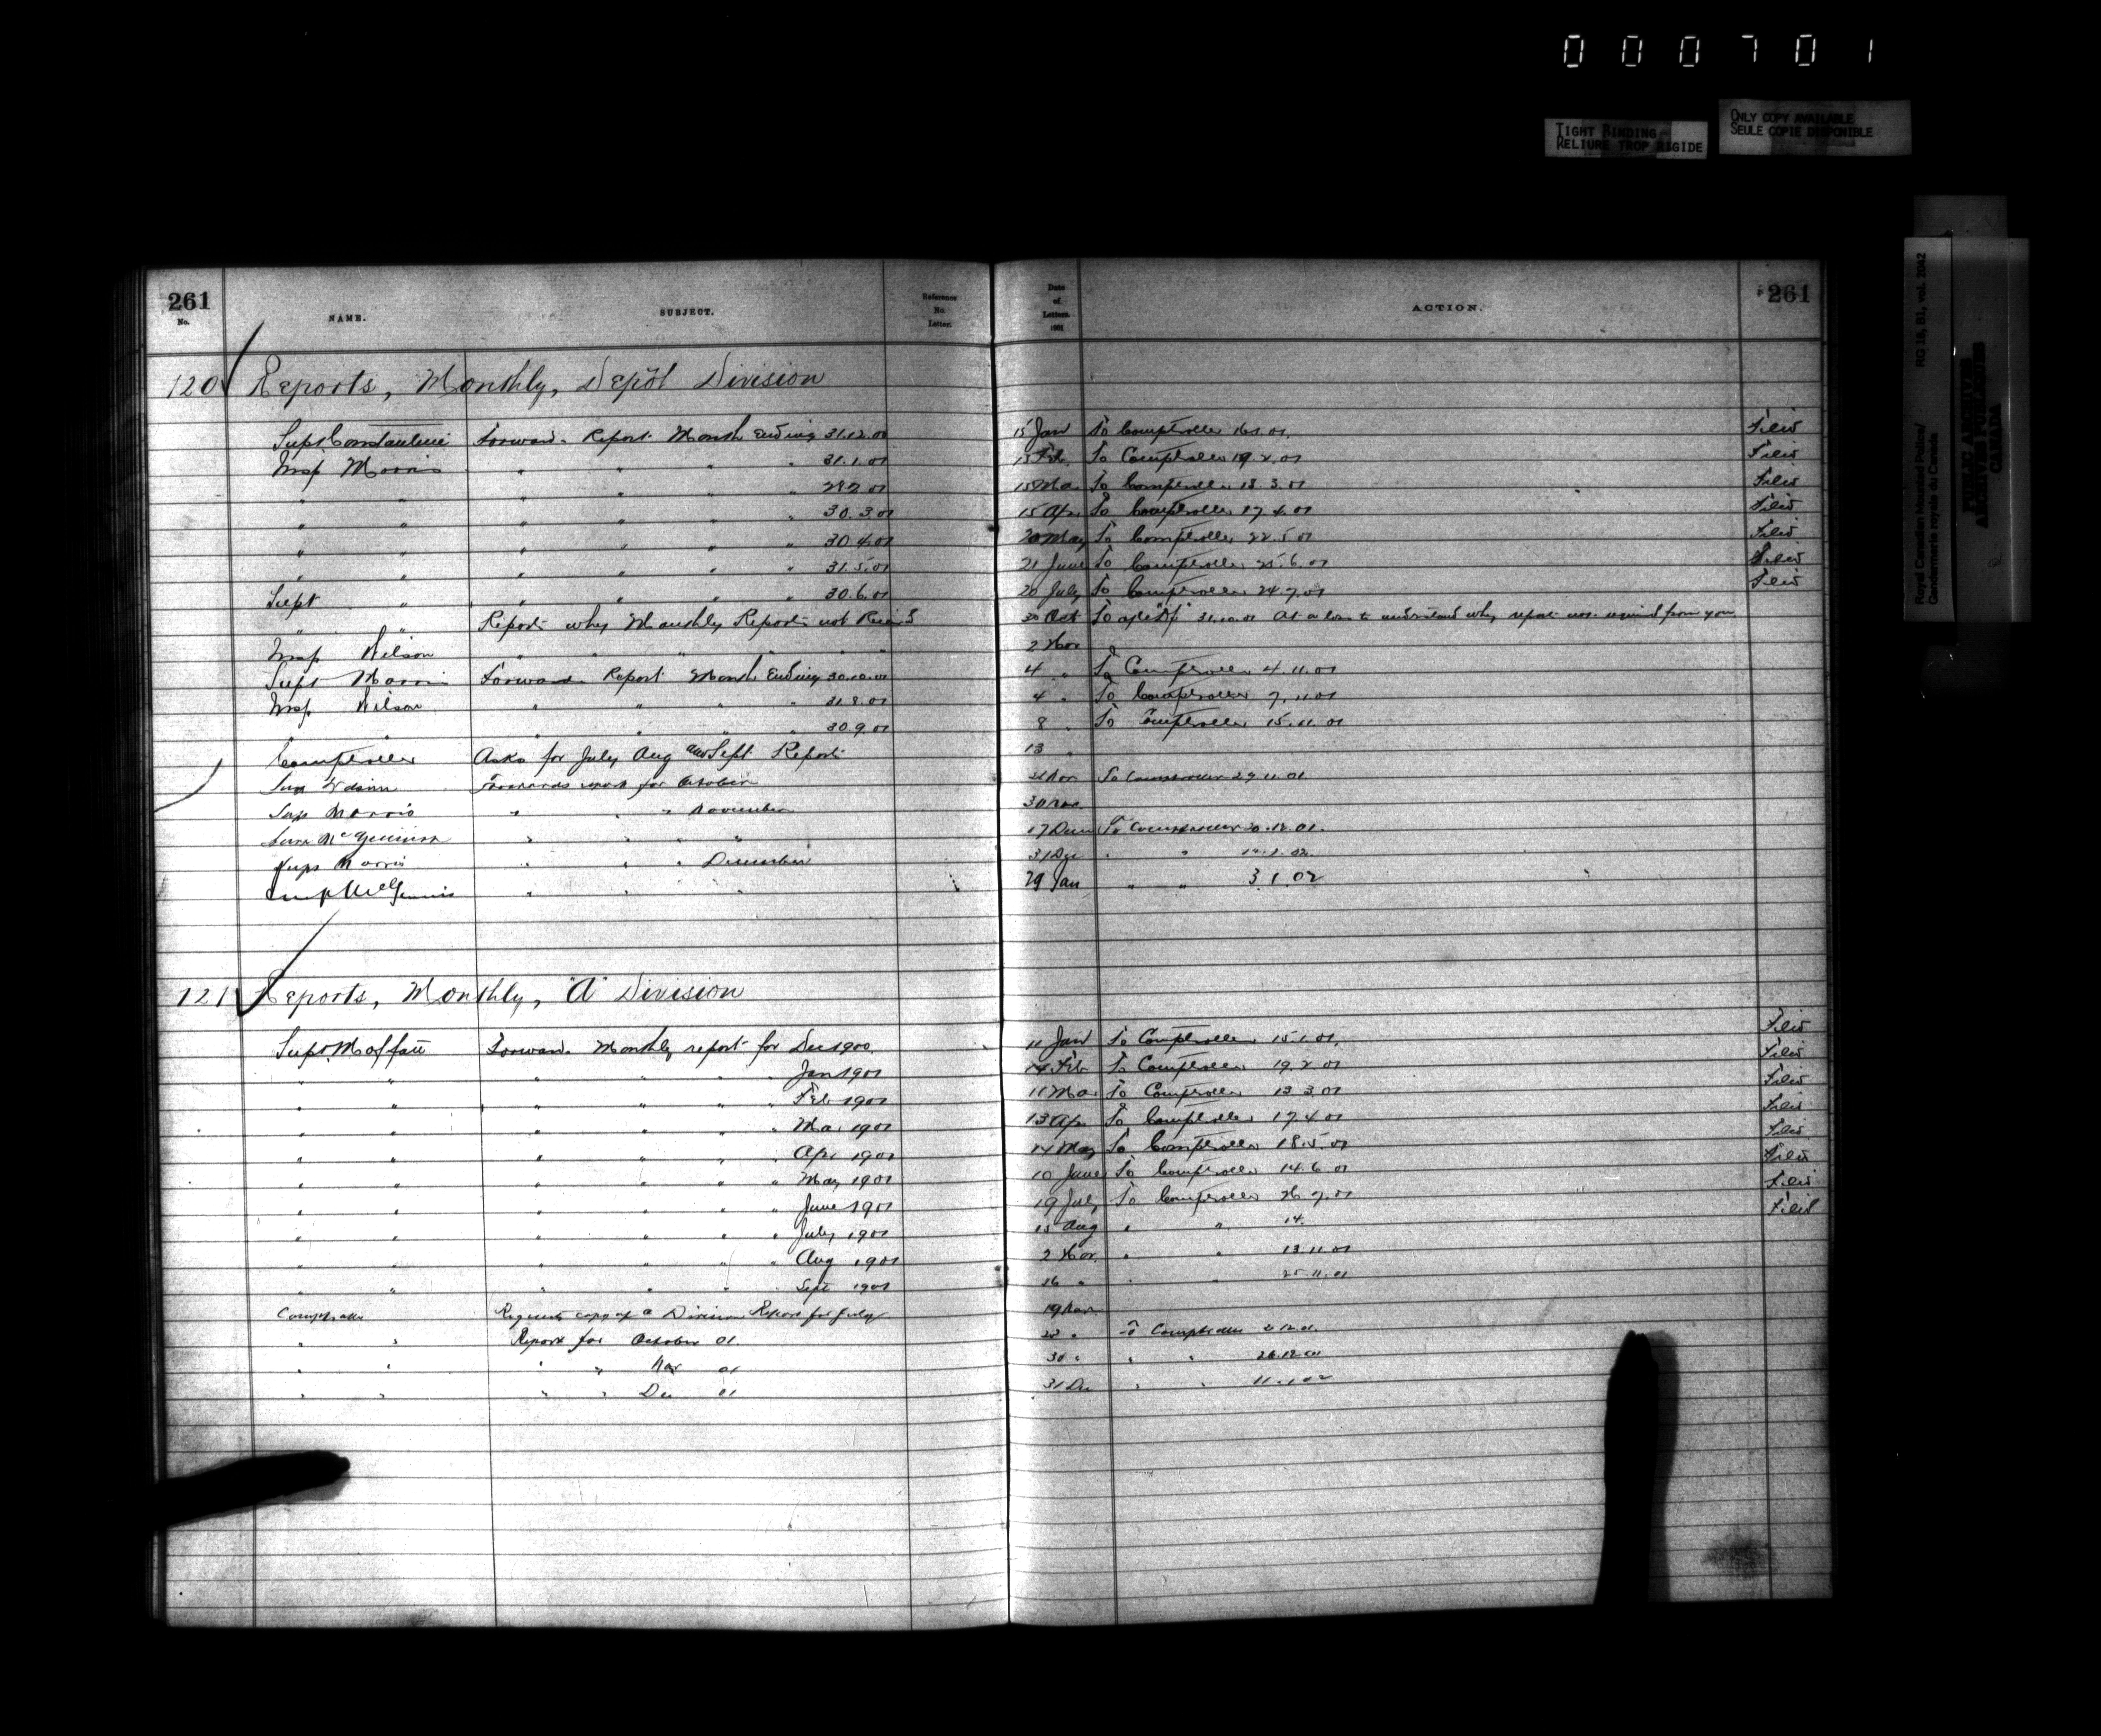 000701
TIGHT BINDING
RELIURE TROP RIGIDE
ONLY COPY AVAILABLE
SEULE COPIE DISPONIBLE
Royal Canadian Mounted Police/ RG 18, B1, vol. 2042
Gendarmerie royale du Canada
PUBLIC ARCHIVES
ARCHIVES PUBLIQUES
CANADA
261 261
No. NAME. SUBJECT. Reference No. Letter. Date of Letters. 1901 ACTION.
120 Reports, Monthly, Depôt Division
Supt Constantine Forwards Report Month Ending 31.12.00 15 Jan To Comptroller 16.1.01. Filed
Insp Morris " " " " 31.1.01 13 Feb To Comptroller 19.2.01 Filed
" " " " " " 28.2.01 15 Mar To Comptroller 18.3.01 Filed
" " " " " " 30.3.01 15 Apr To Comptroller 17.4.01 Filed
" " " " " " 30.4.01 20 May To Comptroller 22.5.01 Filed
" " " " " " 31.5.01 21 June To Comptroller 25.6.01 Filed
Supt " " " " " 30.6.01 20 July To Comptroller 24.7.01 Filed
" " Reports why Monthly Reports not Recived 30 Oct To 31.10.01 At a loss to understand why report was required from you
Insp Wilson " " " " " 2 Nov
Supt Morris Forwards Report Month Ending 30.10.01 4 " To Comptroller 4.11.01
Insp Wilson " " " " 31.8.01 4 " To Comptroller 7.11.01
" " " " " " 30.9.01 8 " To Comptroller 15.11.01
Comptroller Asks for July Aug and Sept Reports 13 "
Wilson Forwards report for October Nov To Comptroller 29.11.01
Supt Morris " " " November 30 Nov
" " " " 17 Dec To Comptroller 20.12.01.
Supt Morris " " " December 31 Dec " "
McGinnis " " " 29 Jan " " 3.1.02
121 Reports, Monthly, "A" Division
Supt. Moffatt Forwards Monthly report for Dec 1900. 11 Jan To Comptroller 15.1.01. Filed
" " " " " " Jan 1901 14 Feb To Comptroller 19.2.01 Filed
" " " " " " Feb 1901 11 Mar To Comptroller 13.3.01 Filed
" " " " " " Mar 1901 13 Apr To Comptroller 17.4.01 Filed
" " " " " " Apr 1901 14 May To Comptroller 18.5.01 Filed
" " " " " " May 1901 10 June To Comptroller 14.6.01 Filed
" " " " " " June 1901 19 July To Comptroller 26.7.01 Filed
" " " " " " July 1901 15 Aug " " 14. Filed
" " " " " " Aug 1901 2 Nov. " " 13.11.01
" " " " " " Sept 1901 16 " " " 25.11.01
Comptroller Requests copy of A Division Report for July 19 Nov.
" " Report for October 01. " To Comptroller 2.12.01.
" " " " Nov 01 30 " " " 26.12.01
" " " " Dec 01 31 Dec " " 11.1.02